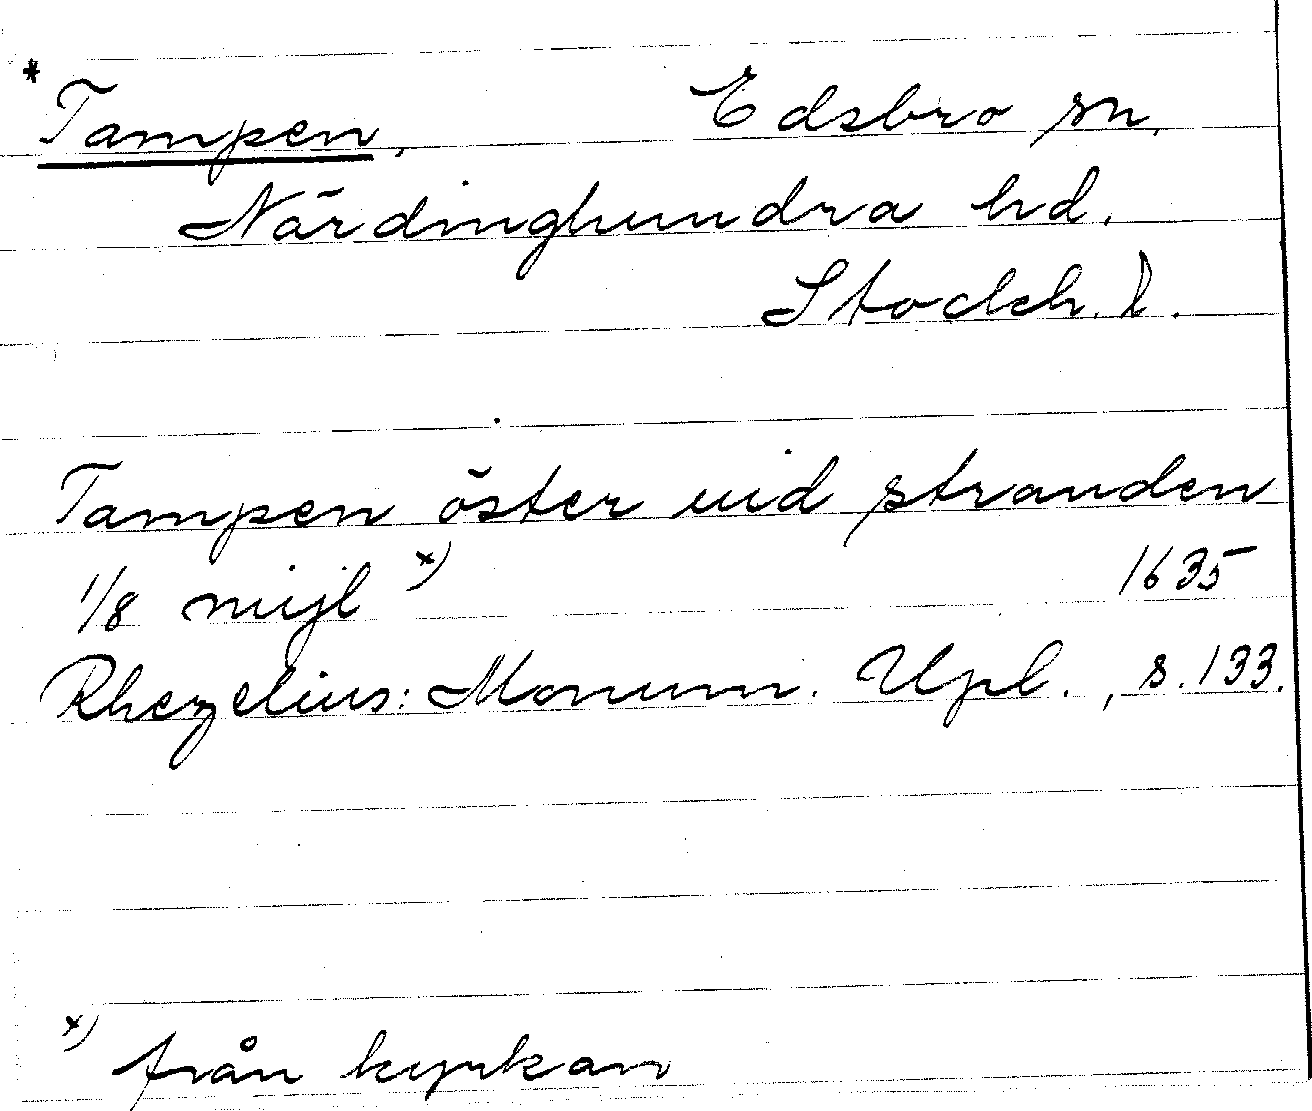 * Tampen, Edsbro sn.
Närdinghundra hd.
Stockh. l.
Tampen öster uid stranden
1/8 mijl x) 1635
Rhezelius: Monum. Upl., s. 133.
x) från kyrkan